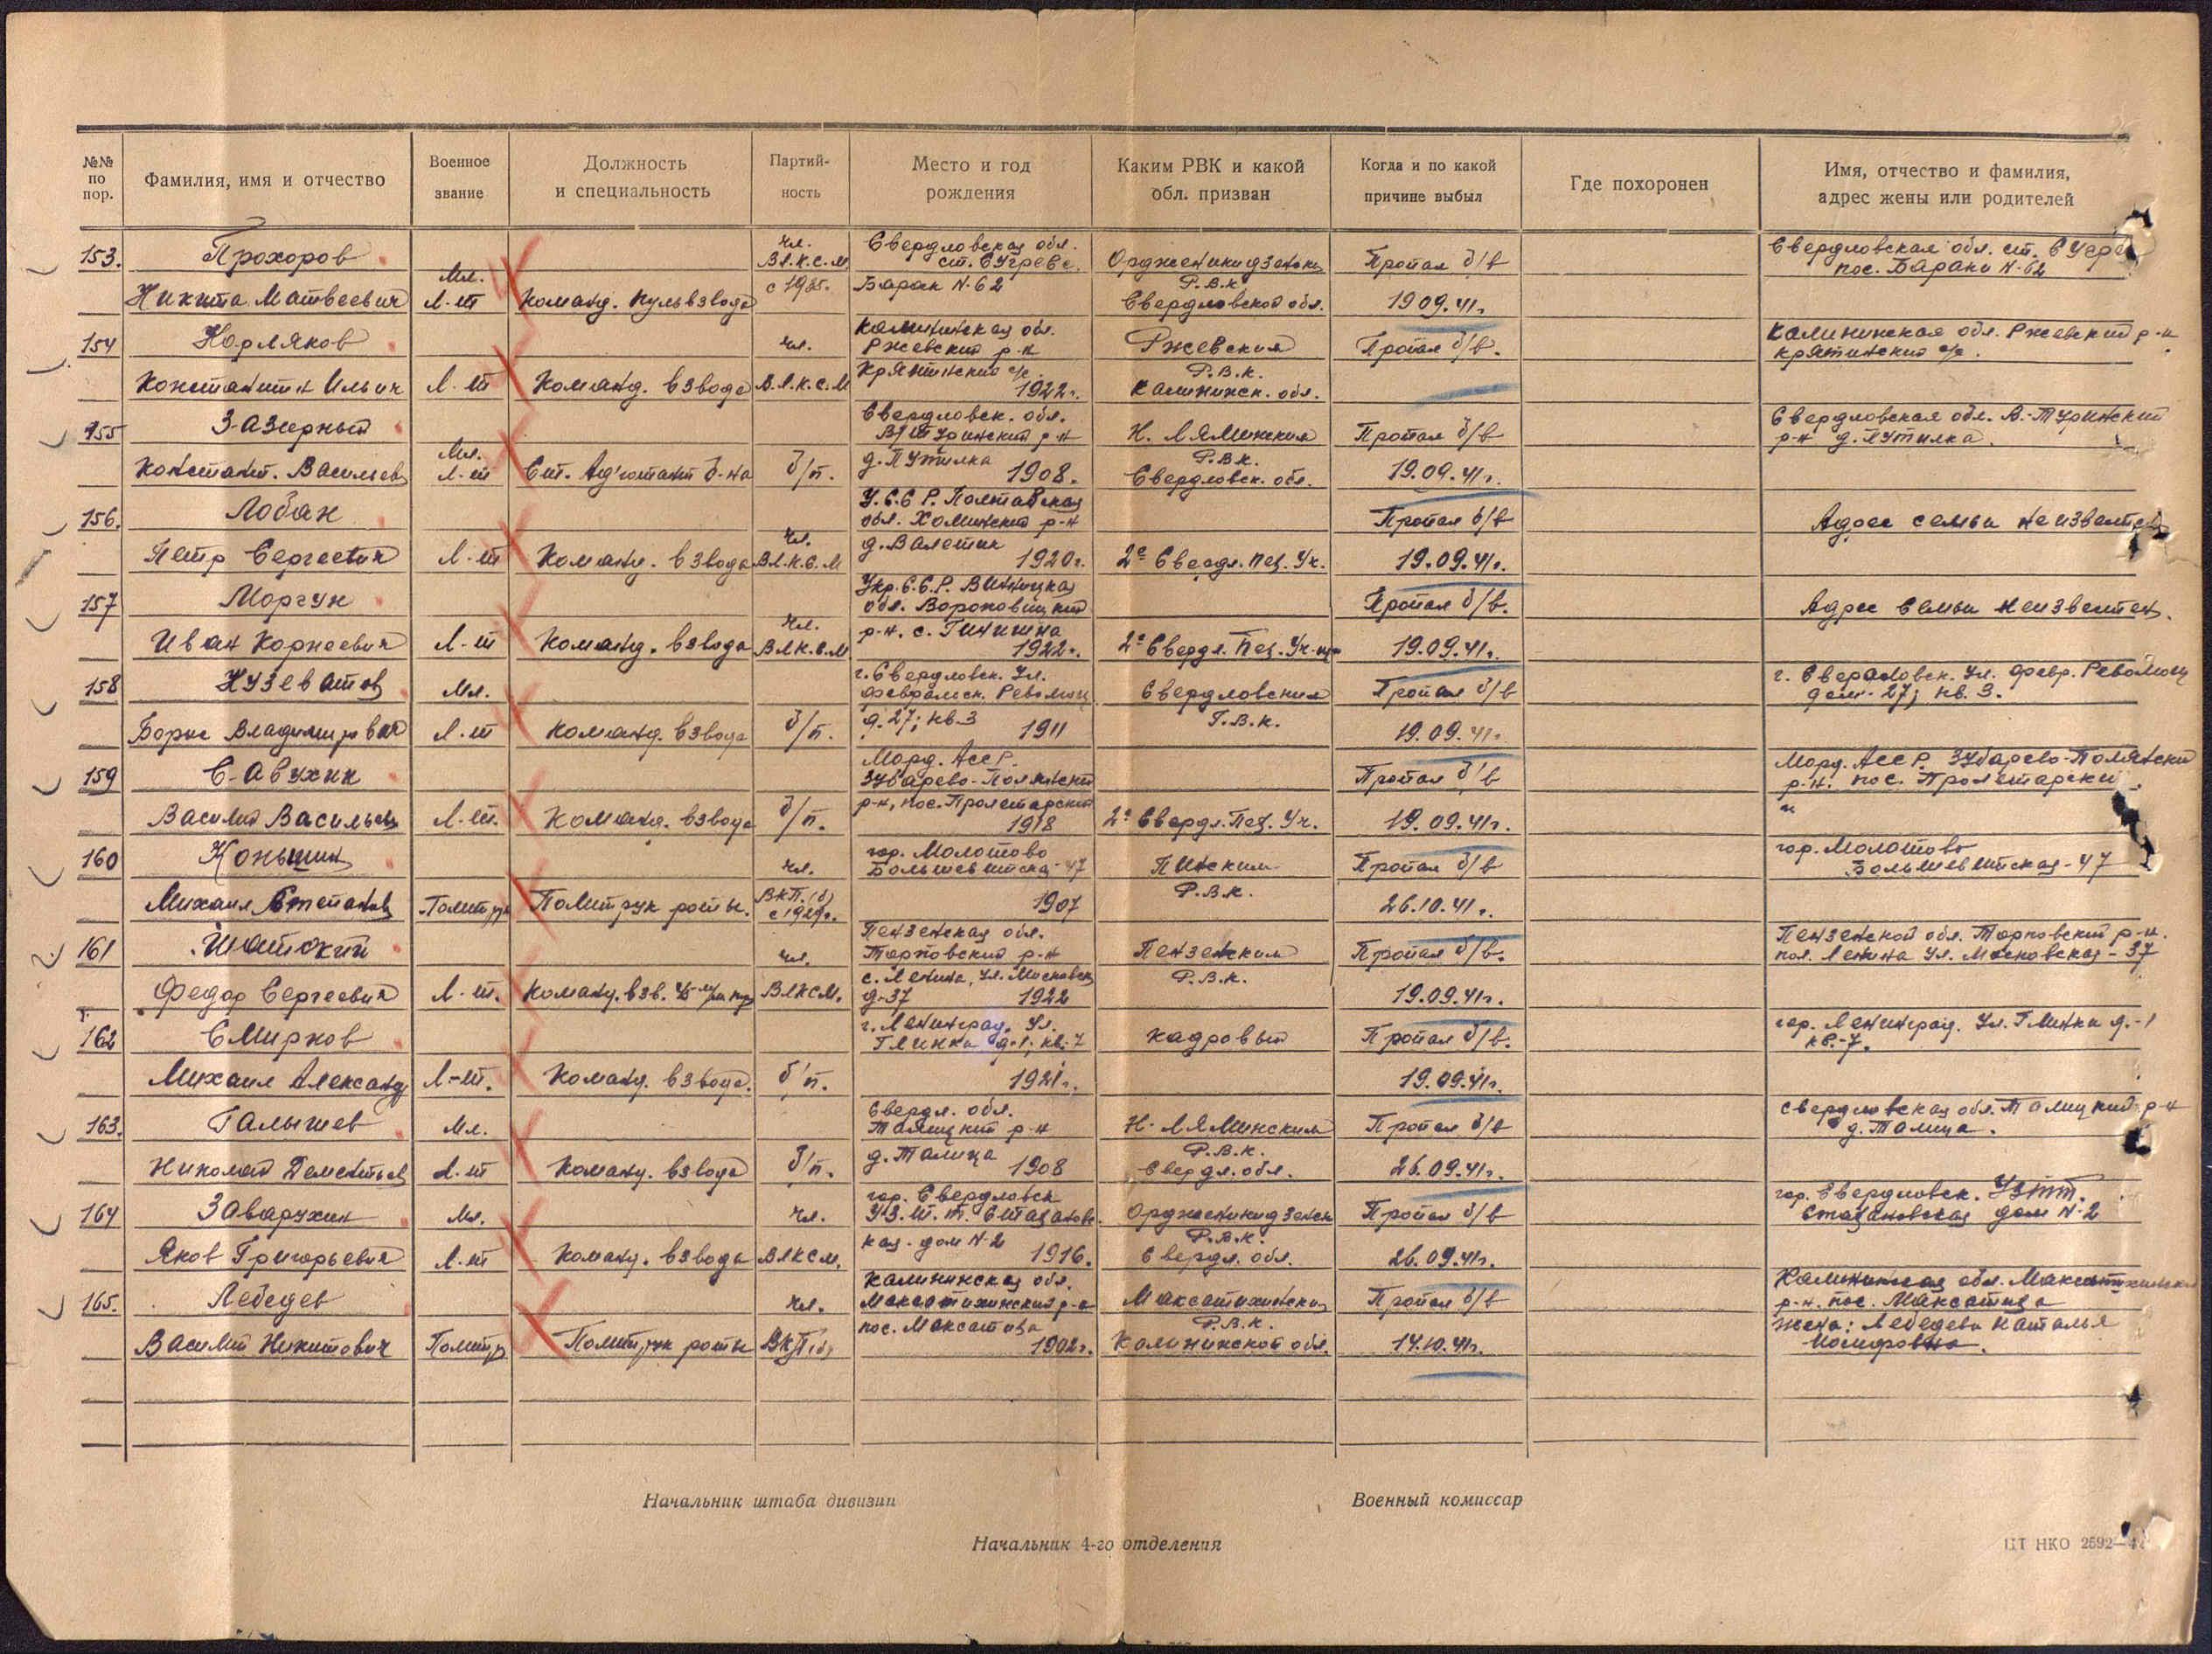 №№ по пор.
Фамилия, имя и отчество
Военное звание
Должность и специальность
Партий- ность
Место и год рождения
Каким РВК и какой обл. призван
Когда и по какой причине выбыл
Где похоронен
Имя, отчество и фамилия, адрес жены или родителей
153. Прохоров чл. Свердловская обл. Свердловская обл. ст.
Мл. В.Л.К.С.М ст. Орджоникидзевским Пропал б/в пос. Бараки N-62
Никита Матвеевич Л-т Команд. пульвзвода Барак N-62 Р.В.К Свердловской обл. 19 09.41г.
154 Калининская обл. Калининская обл. Ржевский р-н
чл. Ржевский р-н Ржевским Пропал б/в.
Константин Ильич Л-т Команд. взвода В.Л.К.С.М 1922г. Р.В.К. Калининск. обл.
155 Свердловск. обл. Свердловская обл. В.-Туринский
В/Туринский р-н Н. Лялинским Пропал б/в р-н д. Путилка.
Мл. Р.В.К.
Констант. Васильев Л-т Ст. Ад'ютант б-на б/п. д. Путилка 1908. Свердловск. обл. 19.09.41г.
156. Лобан У.С.С Р. Полтавская
обл. р-н Пропал б/в Адрес семьи неизвестен
чл.
Петр Сергеевич Л-т Команд. взвода ВЛ.К.С.М 1920г. 2е Свердл. Пех. Уч. 19.09.41г.
157 Моргун Укр.С.С.Р. Винницкая
обл. Вороновицкий Пропал б/в. Адрес семьи неизвестен.
чл.
Иван Корнеевич Л-т Команд. взвода ВЛК.С.М р-н. с. 1922г. 2е Свердл. Пех. Уч-ще 19.09.41г.
158 Кузеватов Мл. г. Свердловск. Ул. г. Свердловск. Ул. Февр. Революц
Февральск. Революц Свердловским Пропал б/в дом-27; кв. 3.
Борис Владимирович Л-т Команд. взвода б/п. д. 27; кв-3 1911 Г.В.К. 19.09.41г.
159 Савухин Морд. АССР. Морд. АССР. Зубарево-Полянский
Зубарево-Полянский Пропал б/в р-н. пос. Пролетарский
Василий Васильев Л-т. Команд. взвода б/п. р-н, пос. Пролетарский 1918 2е Свердл. Пех. Уч. 19.09.41г.
160 Коньшин гор. Молотово гор. Молотово
чл. Большевитская-47 Пропал б/в Большевитская-47
Михаил Степанов Политрук Политрук роты. ВКП.(б) 1907 Р.В.К. 26.10.41г.
161 Пензенская обл. Пензенской обл. р-н.
чл. р-н Пензенским Пропал б/в. пос. Ленина Ул. Московская-37
Федор Сергеевич Л-т. ВЛКСМ. с. Ленина, ул. Московск д-37 1922 Р.В.К. 19.09.41г.
162 Смирнов г. Ленинград. Ул. гор. Ленинград. Ул. Глинки д.-1
Глинки д-1; кв-7 кадровый Пропал б/в. кв.-7.
Михаил Александр Л-т. Команд. взвода. б/п. 1921г. 19.09.41г.
163. Галышев Мл. Свердл. обл. Свердловская обл. Талицкий р-н
Талицкий р-н Н. Лялинским Пропал б/в д. Талица.
Николай Дементьев Л-т Команд. взвода б/п. д. Талица 1908 Р.В.К. Свердл. обл. 26.09.41г.
164 Заварухин Мл. гор. Свердловск гор. Свердловск. УЗТМ.
чл. У.З.Т.М. Стаханов Орджоникидзевск Пропал б/в Стахановская дом N-2
Яков Григорьевич Л-т Команд. взвода ВЛКСМ. кая-дом N-2 1916. Р.В.К. Свердл. обл. 26.09.41г.
165. Лебедев Калининская обл. Калининская обл. Максатихинский
чл. Максатихинский р-н Максатихинским Пропал б/в р-н. пос. Максатиха
Р.В.К. жена: Лебедева Наталья
Василий Никитович Политр Политрук роты ВКП(б) пос. Максатиха 1902г. Калининской обл. 14.10.41г. Иосифовна.
Начальник штаба дивизии
Военный комиссар
Начальник 4-го отделения
ЦТ НКО 2592—4